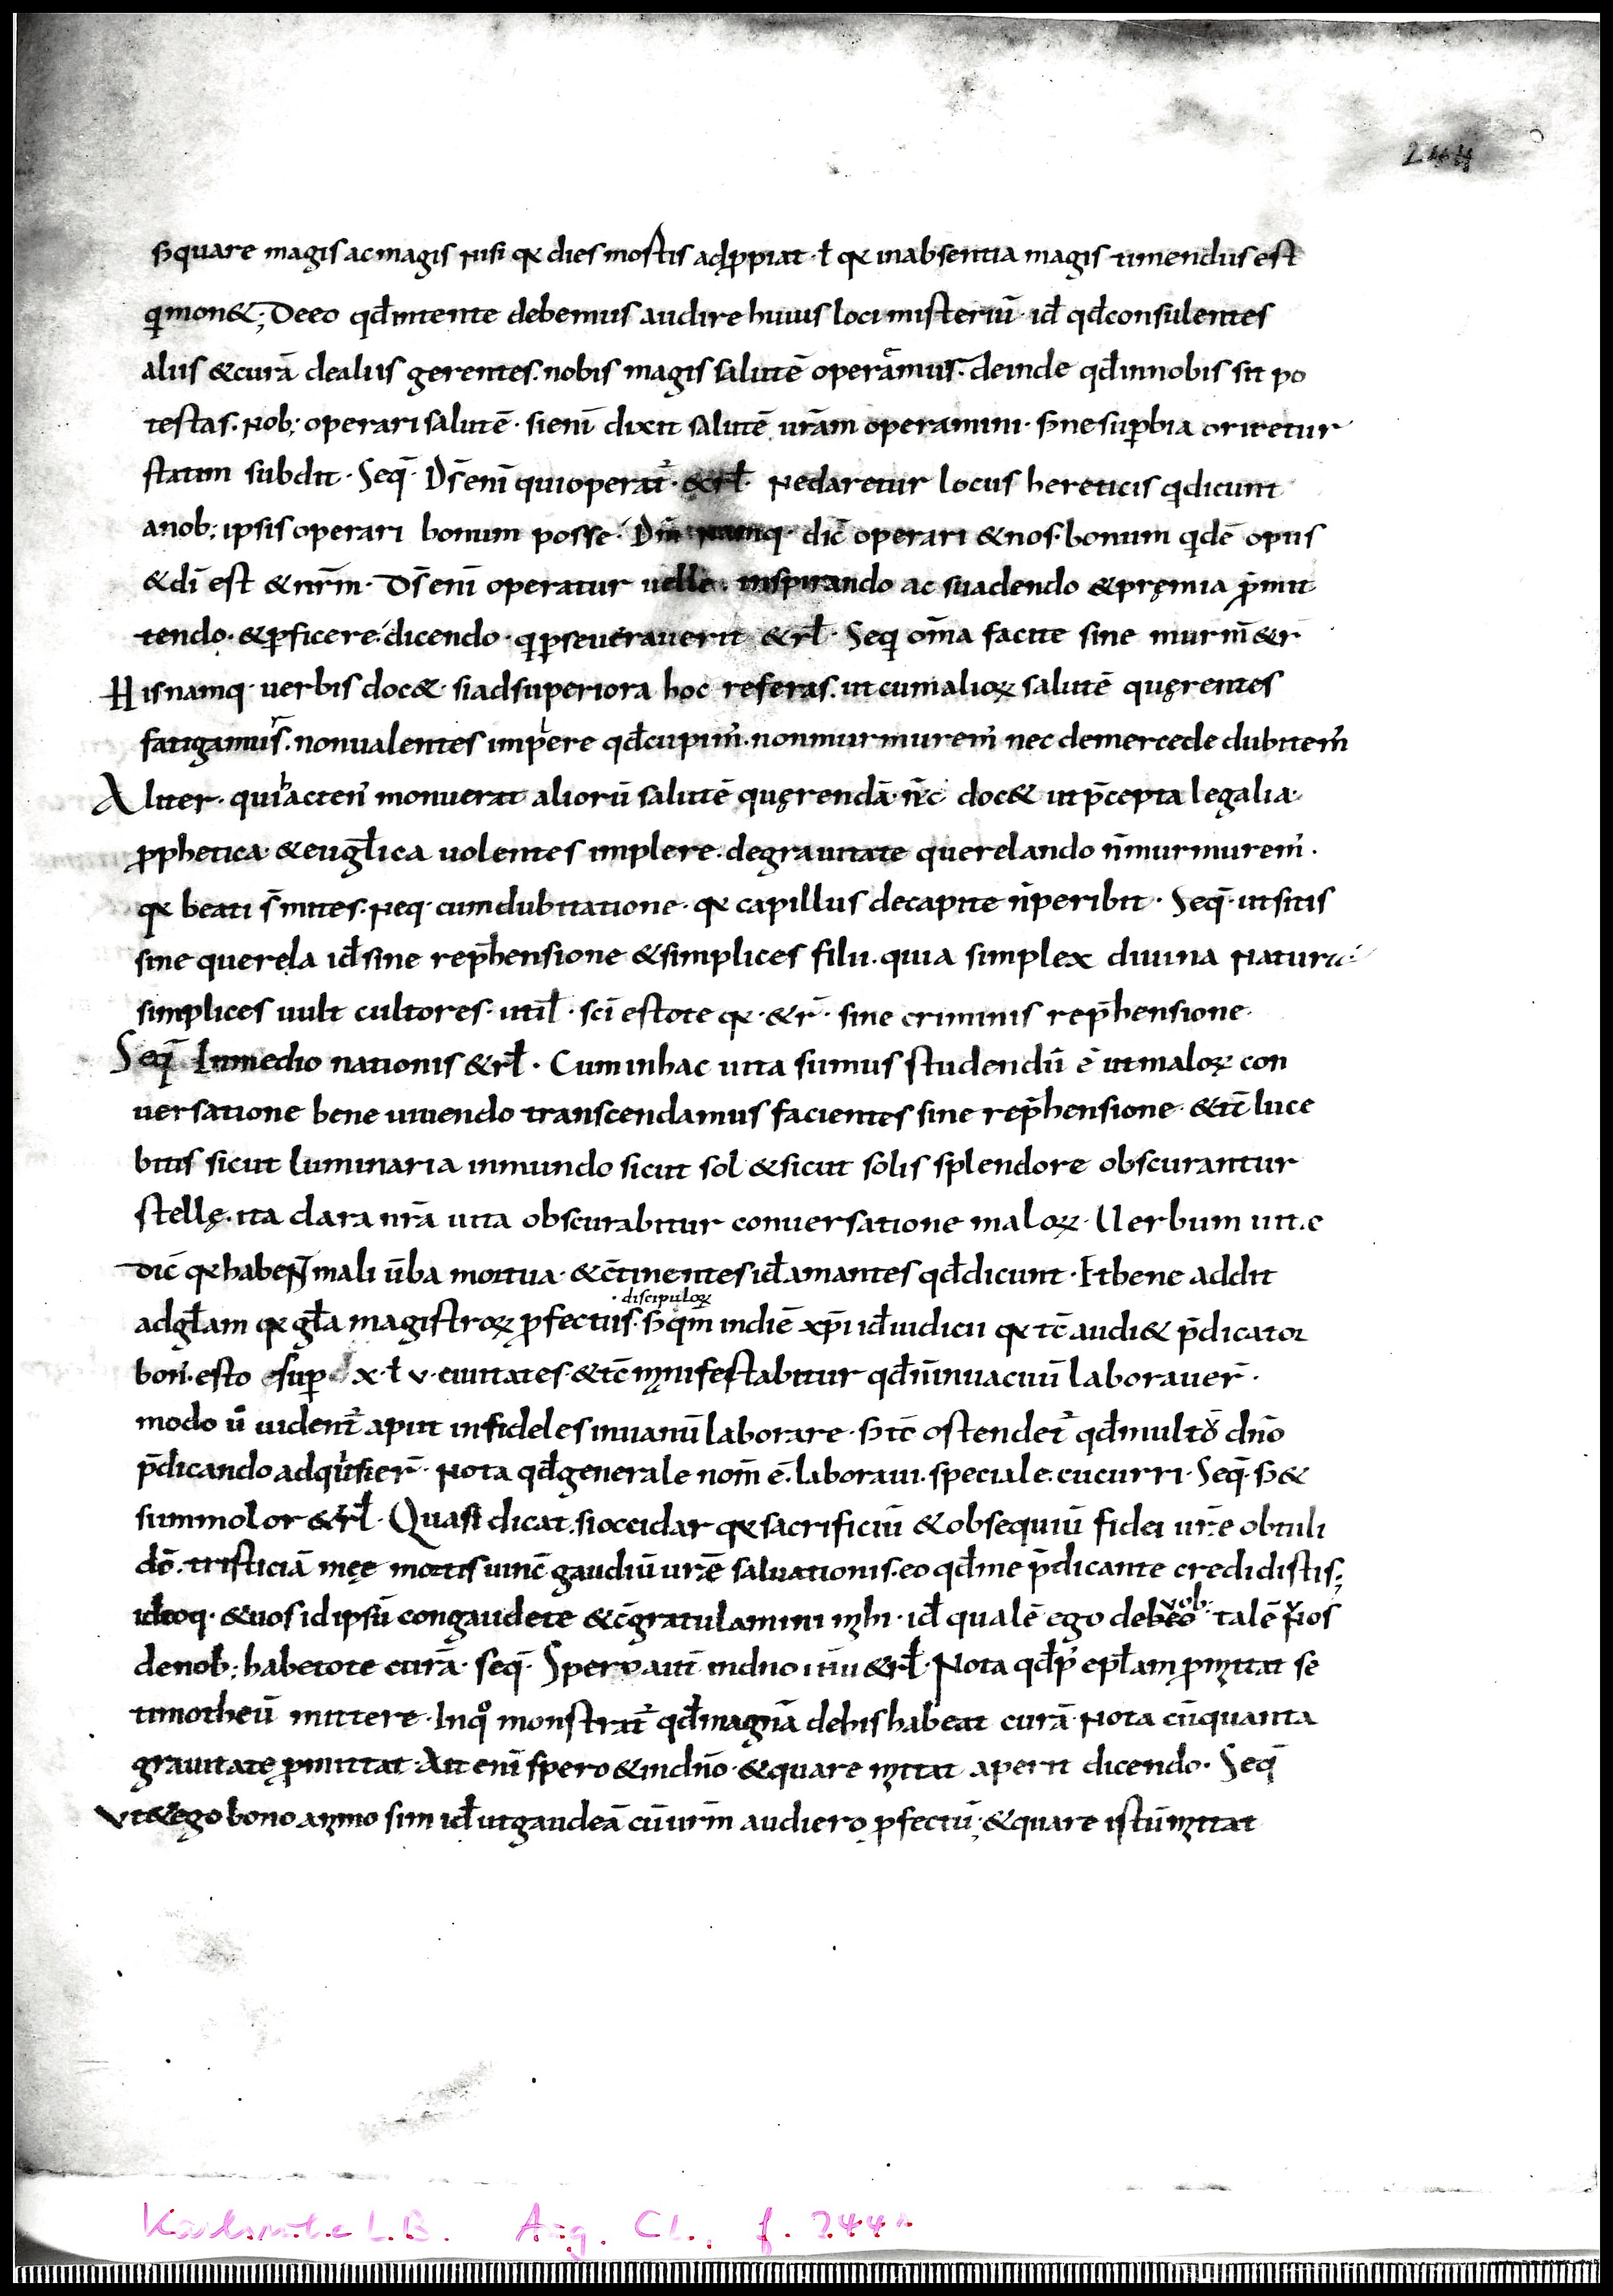 244
s̄ quare magis ac magis nisi qꝛ dies mortis adp̱ropiat · ł qꝛ in absentia magis timendus est
qi mon&; De eo qđ intente debemus audire huius loci misteriū · iđ qđ consulentes
aliis & curā de aliis gerentes. nobis magis salutē operamur. deinde qđ in nobis sit po
testas. nob; operari salutē · si enī dixit salutē ur̄am operamini · s̄ ne suꝑbia oriretur
statim subdit · Seq̄ · Dс̄ enī qui operat᷑ · & rł · Ne daretur locus hereticis qi dicunt
a nob; ipsis operari bonum posse · Dm̄ namq · dic̄ operari & nos · bonum qidē opus
& dī est & nr̄m · Ds̄ enī operatur uelle · inspirando ac suadendo & pręmia ꝓmit
tendo · & ꝑficere · dicendo · qi ꝑseuerauerit & rł · Seq om̄a facite sine murm̄ & r̄
His namq · uerbis doc& · si ad superiora hoc referas. ut cum alioꝝ salutē quęrentes
fatigamur. non ualentes impłere qđ cupim᷑. non murmurem᷑ nec de mercede dubitem᷑
Aliter · quia hacten᷑ monuerat aliorū salutē quęrendā · n̄c doc& ut p̄cepta legalia ·
ꝓphetica · & eugłica uolentes implere. de grauitate querelando n̄ murmurem᷑ ·
qꝛ beati s̄ mites. Neq · cum dubitatione · qꝛ capillus de capite n̄ peribit · Seq̄ · ut sitis
sine querela iđ sine rep̄hensione & simplices filii. quia simplex diuina natura
simplices uult cultores · ut ił · sc̄i estote qꝛ · & r̄ · sine criminis rep̄hensione ·
Seq̄ In medio nationis & rł · Cum in hac uita sumus studendū ē ut maloꝝ con
uersatione bene uiuendo transcendamus facientes sine rep̄hensione · & tc̄ luce
bitis sicut luminaria in mundo sicut sol & sicut solis splendore obscurantur
stellę · ita clara nr̄a uita obscurabitur conuersatione maloꝝ · Uerbum uitae
dic̄ qꝛ habent mali ūba mortua · & c̄tinentes iđ amantes qđ dicunt · Et bene addit
· discipuloꝝ
ad głam qꝛ gła magistroꝝ ꝓfectus · s̄ qm̄ in diē xp̄i iđ iudicii qꝛ tc̄ audi& p̄dicator
bon᷑ · esto suꝑ x · ł v · ciuitates · & tc̄ manifestabitur qđ n̄ in uacuū laborauer̄ ·
modo ū uident᷑ aput infideles in uanū laborare · s̄ tc̄ ostendet᷑ qđ multos dn̄o
p̄dicando adquisier̄ · Nota qđ generale nom̄ ē · laboraui · speciale · cucurri · Seq̄ · s̄ &
si immolor & rł · Quasi dicat · si occidar qꝛ sacrificiū & obsequiū fidei ur̄e obtuli
dō · tristiciā męe mortis uinc̄ gaudiū ur̄ē saluationis · eo qđ me p̄dicante credidistis;
ideoq · & uos id ipsū congaudete & c̄gratulamini mihi · iđ qualē ego debeo uob · talē & uos
de nob; habetote curā · seq̄ · Spero aut̄ in dn̄o iħu & rł · Nota qđ ꝑ epłam ꝓmittat se
timotheū mittere · In qͦ monstrat᷑ qđ magnā de his habeat curā · Nota cū quanta
grauitate ꝓmittat · Ait enī spero & in dn̄o · & quare mittat aperit dicendo · Seq̄
Vt & ego bono animo sim iđ ut gaudeā cū ur̄m audiero ꝓfectū; & quare istū mittat
Karlsruhe L.B. Aug. CL., f. 244ʳ